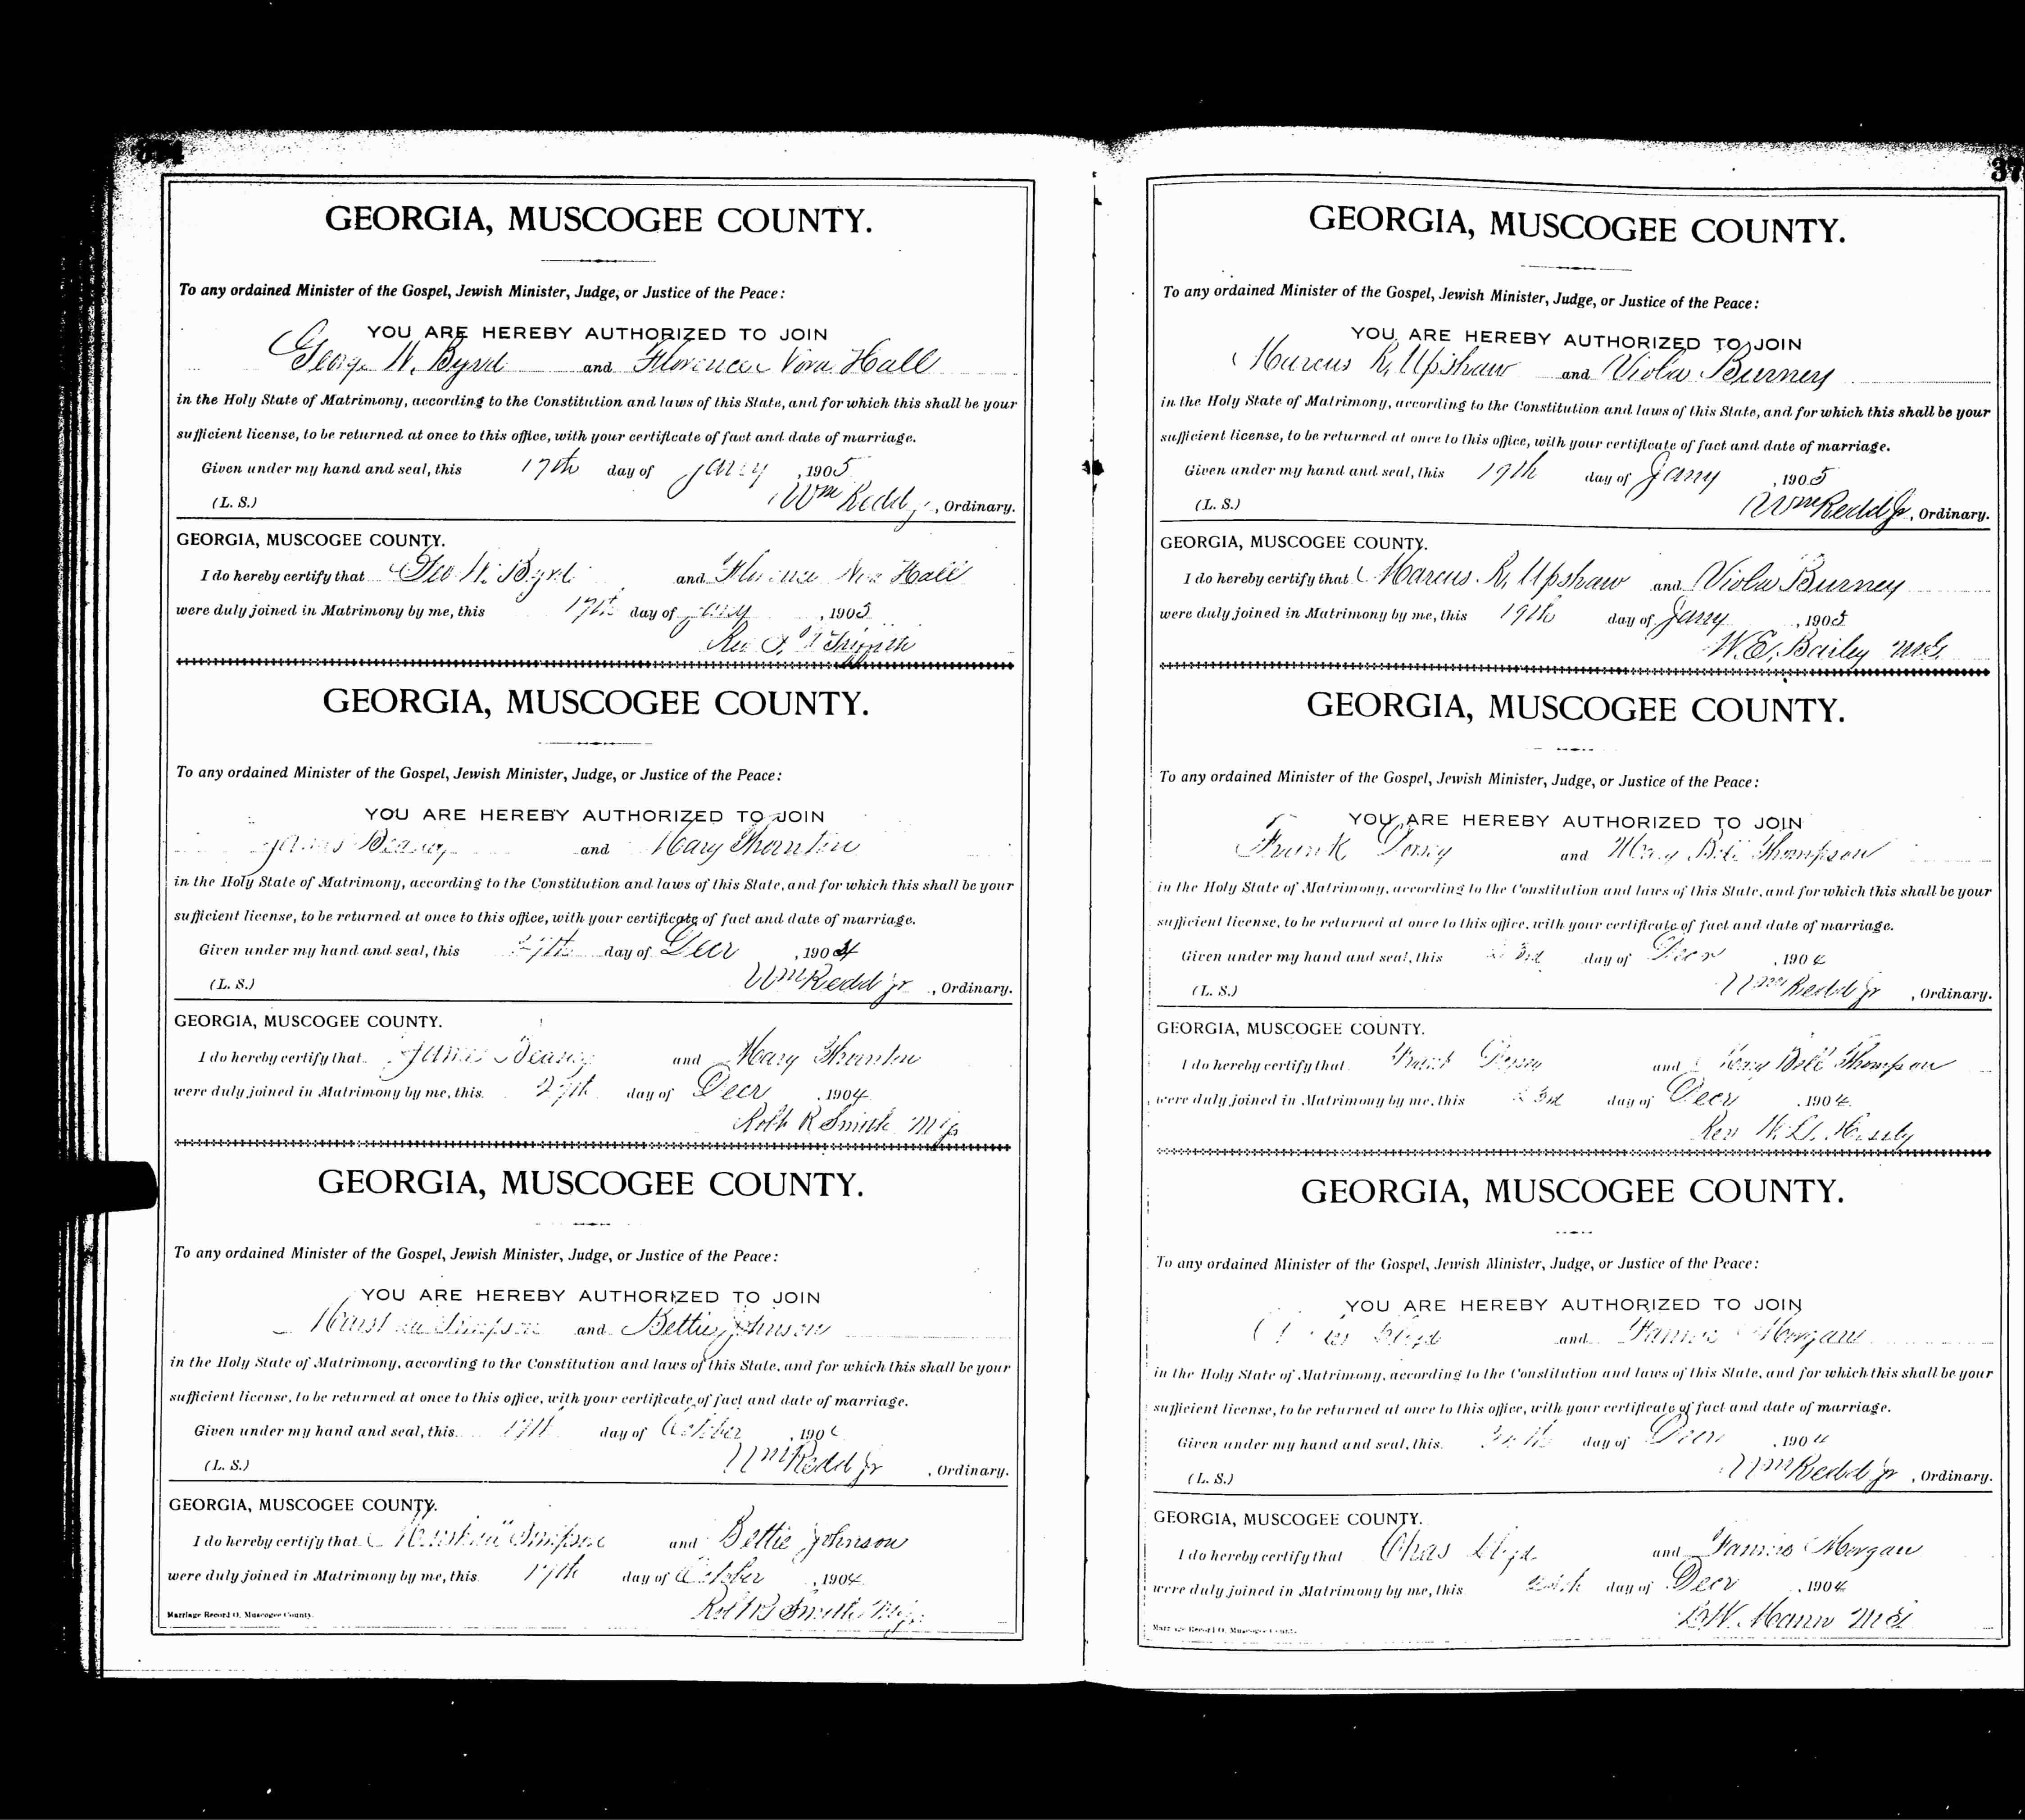 GEORGIA, MUSCOGEE COUNTY.
To any ordained Minister of the Gospel, Jewish Minister, Judge, or Justice of the Peace:
YOU ARE HEREBY AUTHORIZED TO JOIN
George W. Byrd and Florence Nora Hall
in the Holy State of Matrimony, according to the Constitution and laws of this State, and for which this shall be your
sufficient license, to be returned at once to this office, with your certificate of fact and date of marriage.
Given under my hand and seal, this 17th day of Jany, 1905
(L. S.) Wm Redd Jr, Ordinary.
GEORGIA, MUSCOGEE COUNTY.
I do hereby certify that Geo W. Byrd and Florence Nora Hall
were duly joined in Matrimony by me, this 17th day of Jany, 1905
Rev
GEORGIA, MUSCOGEE COUNTY.
To any ordained Minister of the Gospel, Jewish Minister, Judge, or Justice of the Peace:
YOU ARE HEREBY AUTHORIZED TO JOIN
James and Mary Thornton
in the Holy State of Matrimony, according to the Constitution and laws of this State, and for which this shall be your
sufficient license, to be returned at once to this office, with your certificate of fact and date of marriage.
Given under my hand and seal, this 27th day of Decr, 1904
(L. S.) Wm Redd Jr, Ordinary.
GEORGIA, MUSCOGEE COUNTY.
I do hereby certify that James and Mary Thornton
were duly joined in Matrimony by me, this 27th day of Decr, 1904
Robt R Smith
GEORGIA, MUSCOGEE COUNTY.
To any ordained Minister of the Gospel, Jewish Minister, Judge, or Justice of the Peace:
YOU ARE HEREBY AUTHORIZED TO JOIN
Simpson and Bettie Johnson
in the Holy State of Matrimony, according to the Constitution and laws of this State, and for which this shall be your
sufficient license, to be returned at once to this office, with your certificate of fact and date of marriage.
Given under my hand and seal, this 17th day of October, 190
(L. S.) Wm Redd Jr, Ordinary.
GEORGIA, MUSCOGEE COUNTY.
I do hereby certify that Simpson and Bettie Johnson
were duly joined in Matrimony by me, this 17th day of October, 1904
Smith
Marriage Record O, Muscogee County.
37
GEORGIA, MUSCOGEE COUNTY.
To any ordained Minister of the Gospel, Jewish Minister, Judge, or Justice of the Peace:
YOU ARE HEREBY AUTHORIZED TO JOIN
Marcus R. Upshaw and Viola Burney
in the Holy State of Matrimony, according to the Constitution and laws of this State, and for which this shall be your
sufficient license, to be returned at once to this office, with your certificate of fact and date of marriage.
Given under my hand and seal, this 19th day of Jany, 1905
(L. S.) Wm Redd Jr, Ordinary.
GEORGIA, MUSCOGEE COUNTY.
I do hereby certify that Marcus R. Upshaw and Viola Burney
were duly joined in Matrimony by me, this 19th day of Jany, 1905
W. E. Bailey M.G.
GEORGIA, MUSCOGEE COUNTY.
To any ordained Minister of the Gospel, Jewish Minister, Judge, or Justice of the Peace:
YOU ARE HEREBY AUTHORIZED TO JOIN
Frank Dorsey and Mary Bell Thompson
in the Holy State of Matrimony, according to the Constitution and laws of this State, and for which this shall be your
sufficient license, to be returned at once to this office, with your certificate of fact and date of marriage.
Given under my hand and seal, this 23rd day of Decr, 1904
(L. S.) Wm Redd Jr, Ordinary.
GEORGIA, MUSCOGEE COUNTY.
I do hereby certify that Frank Dorsey and Mary Bell Thompson
were duly joined in Matrimony by me, this 23rd day of Decr, 1904
Rev
GEORGIA, MUSCOGEE COUNTY.
To any ordained Minister of the Gospel, Jewish Minister, Judge, or Justice of the Peace:
YOU ARE HEREBY AUTHORIZED TO JOIN
Lloyd and Fannie Morgan
in the Holy State of Matrimony, according to the Constitution and laws of this State, and for which this shall be your
sufficient license, to be returned at once to this office, with your certificate of fact and date of marriage.
Given under my hand and seal, this day of Decr, 1904
(L. S.) Wm Redd Jr, Ordinary.
GEORGIA, MUSCOGEE COUNTY.
I do hereby certify that Chas Lloyd and Fannie Morgan
were duly joined in Matrimony by me, this day of Decr, 1904
Mann M.G.
Marriage Record O, Muscogee County.